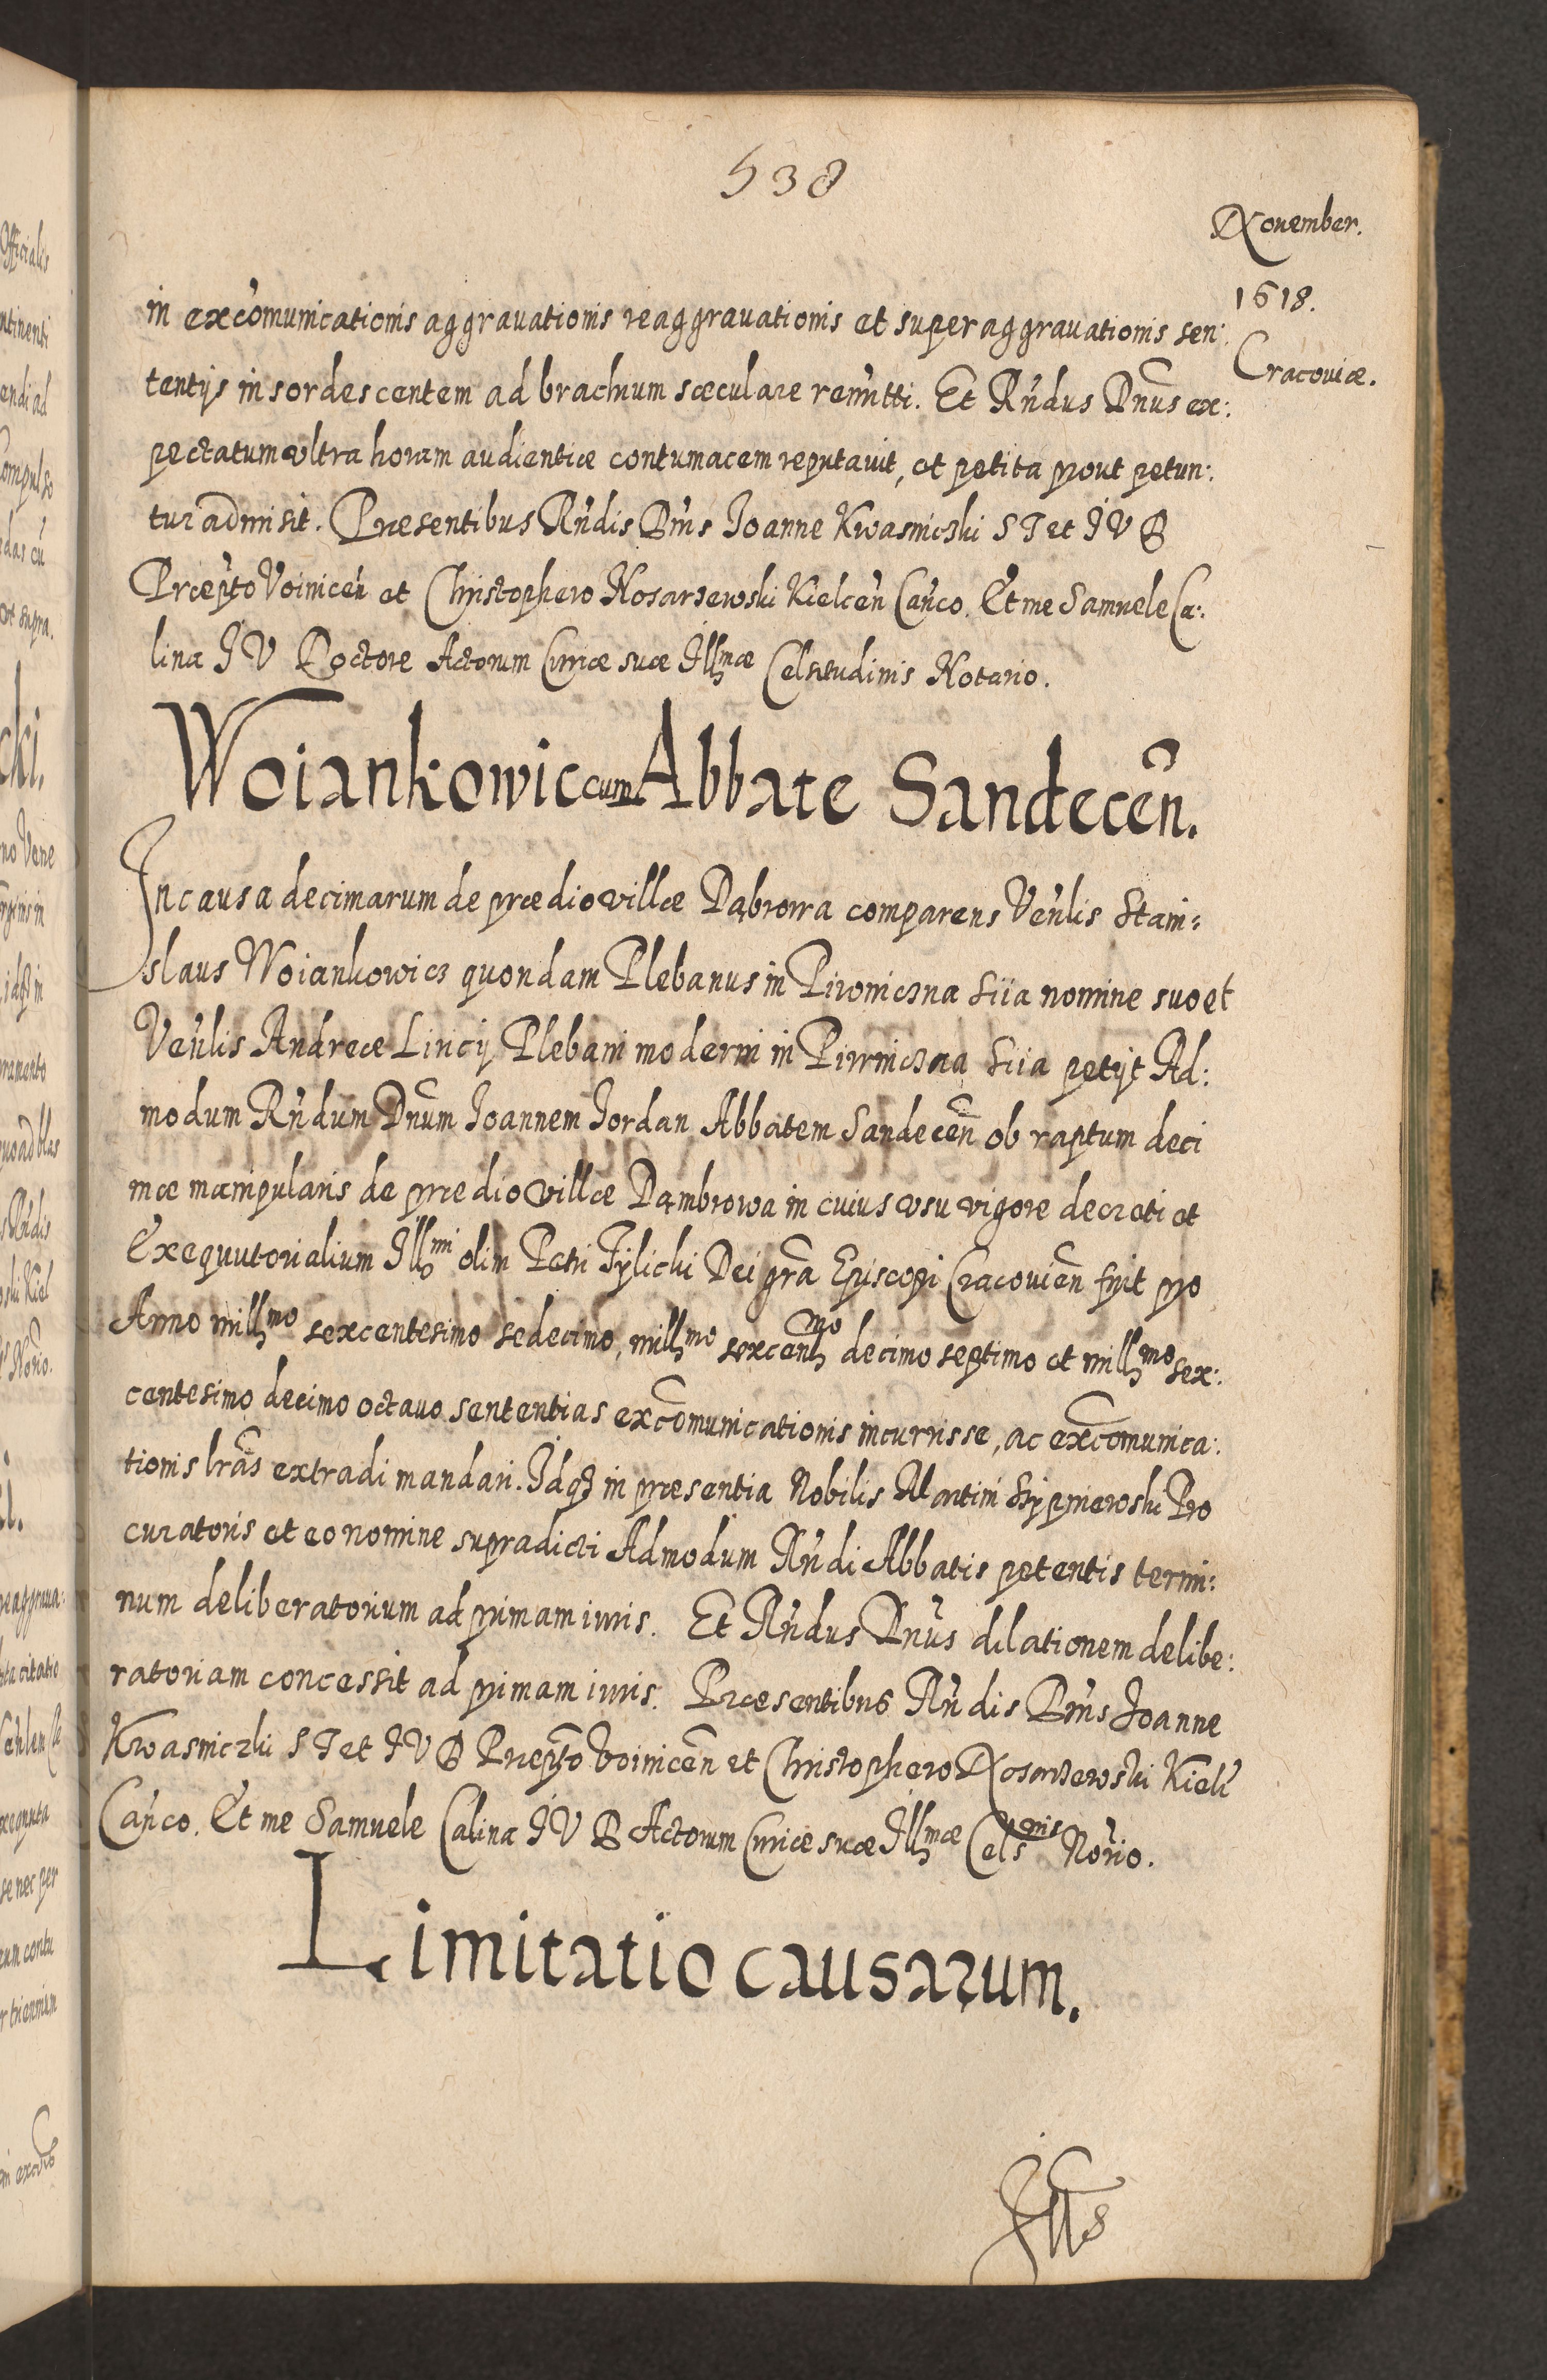 538
Nouember.
1618.
Cracouiæ.
in excõmunicationis aggrauationis reaggrauationis et superaggrauationis sen:
tentijs insordescentem ad brachium sæculare remitti. Et Rñdus Dnũs ex:
pectatum vltra horam audientiæ contumacem reputauit, et petita prout petun:
tur admisit. Præsentibus Rñdis Dnis Joanne Kwasniczki S T et J V D
Præpto Voiniceñ et Christophero Nosarzewski Kielceñ Cañco. Et me Samuele Ca:
lina J V Doctore Actorum Curiæ suæ Illmæ Celsitudinis Notario.
Woiankowic cum Abbate Sandeceñ.
In causa decimarum de prædio villæ Dąbrowa comparens Veñlis Stani:
slaus Woiankowicz quondam Plebanus in Piwniczna Siia nomine suo et
Veñlis Andreæ Lincij Plebani moderni in Piwniczna Siia petijt Ad:
modum Rñdum Dnũm Joannem Jordan Abbatem Sandeceñ ob raptum deci
mæ manipularis de prædio villæ Dąmbrowa in cuius vsu vigore decreti et
Exequutorialium Illmi olim Petri Tylicki Dei grã Episcopi Cracouieñ fuit pro
Anno millmo sexcentesimo sedecimo, millmo sexcentmo decimo septimo et millmo sex:
centesimo decimo octauo sententias excõmunicationis incurrisse, ac excõmunica:
tionis lrãs extradi mandari. Idq3 in præsentia Nobilis Martini Stypniewski Pro
curatoris et eo nomine supradicti Admodum Rñdi Abbatis petentis termi:
num deliberatorium ad primam iuris. Et Rñdus Dnũs dilationem delibe:
ratoriam concessit ad primam iuris. Præsentibus Rñdis Dnis Joanne
Kwasniczki S T et J V D Præpto Voiniceñ et Christophero Nosarzewski Kielc̃
Cañco. Et me Samuele Calina J V D Actorum Curiæ suæ Illmæ Celsnis Norio.
Limitatio causarum.